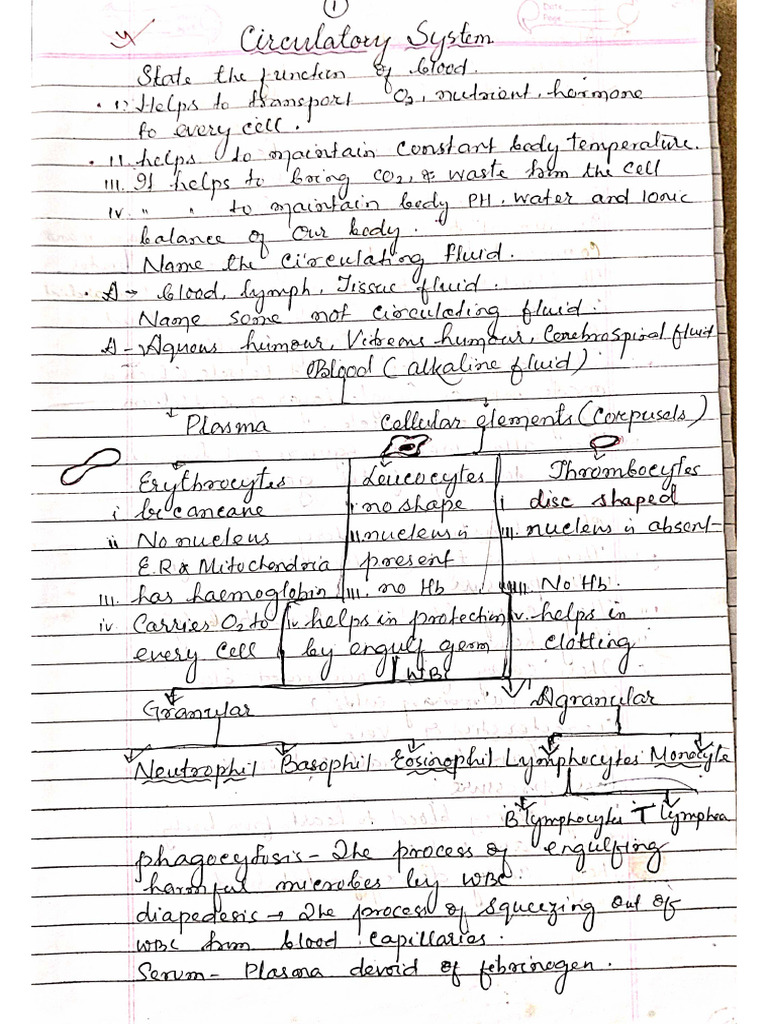 1
Circulatory System
State the function of blood.
i) Helps to transport O2, nutrient, hormone
to every cell.
II. helps to maintain constant body temperature.
III. It helps to bring CO2, & waste from the cell
IV. " " to maintain body PH, water and Ionic
balance of our body.
Name the circulating fluid.
A → blood, lymph, Tissue fluid.
Name some not circulating fluid.
A - Aquous humour, Vitreous humour, Cerebrospiral fluid
Blood (alkaline fluid)
Plasma Cellular elements (Corpusels)
Erythrocytes Leucocytes Thrombocytes
i biconcane i no shape i disc shaped
ii No nucleus II. nucleus is III. nucleus is absent
E.R & Mitochondria present
III. has haemoglobin III. no Hb III. No Hb.
iv Carries O2 to iv. helps in protection iv. helps in
every cell by engulf germ clotting
WBC
Granular Agranular
Neutrophil Basophil Eosinophil Lymphocytes Monocyte
B lymphocytes T lymphea
phagocytosis - The process of engulfing
harmful microbes by WBC.
diapedesis → The process of squeezing out of
WBC from blood capillaries.
Serum - Plasma devoid of febrinogen.